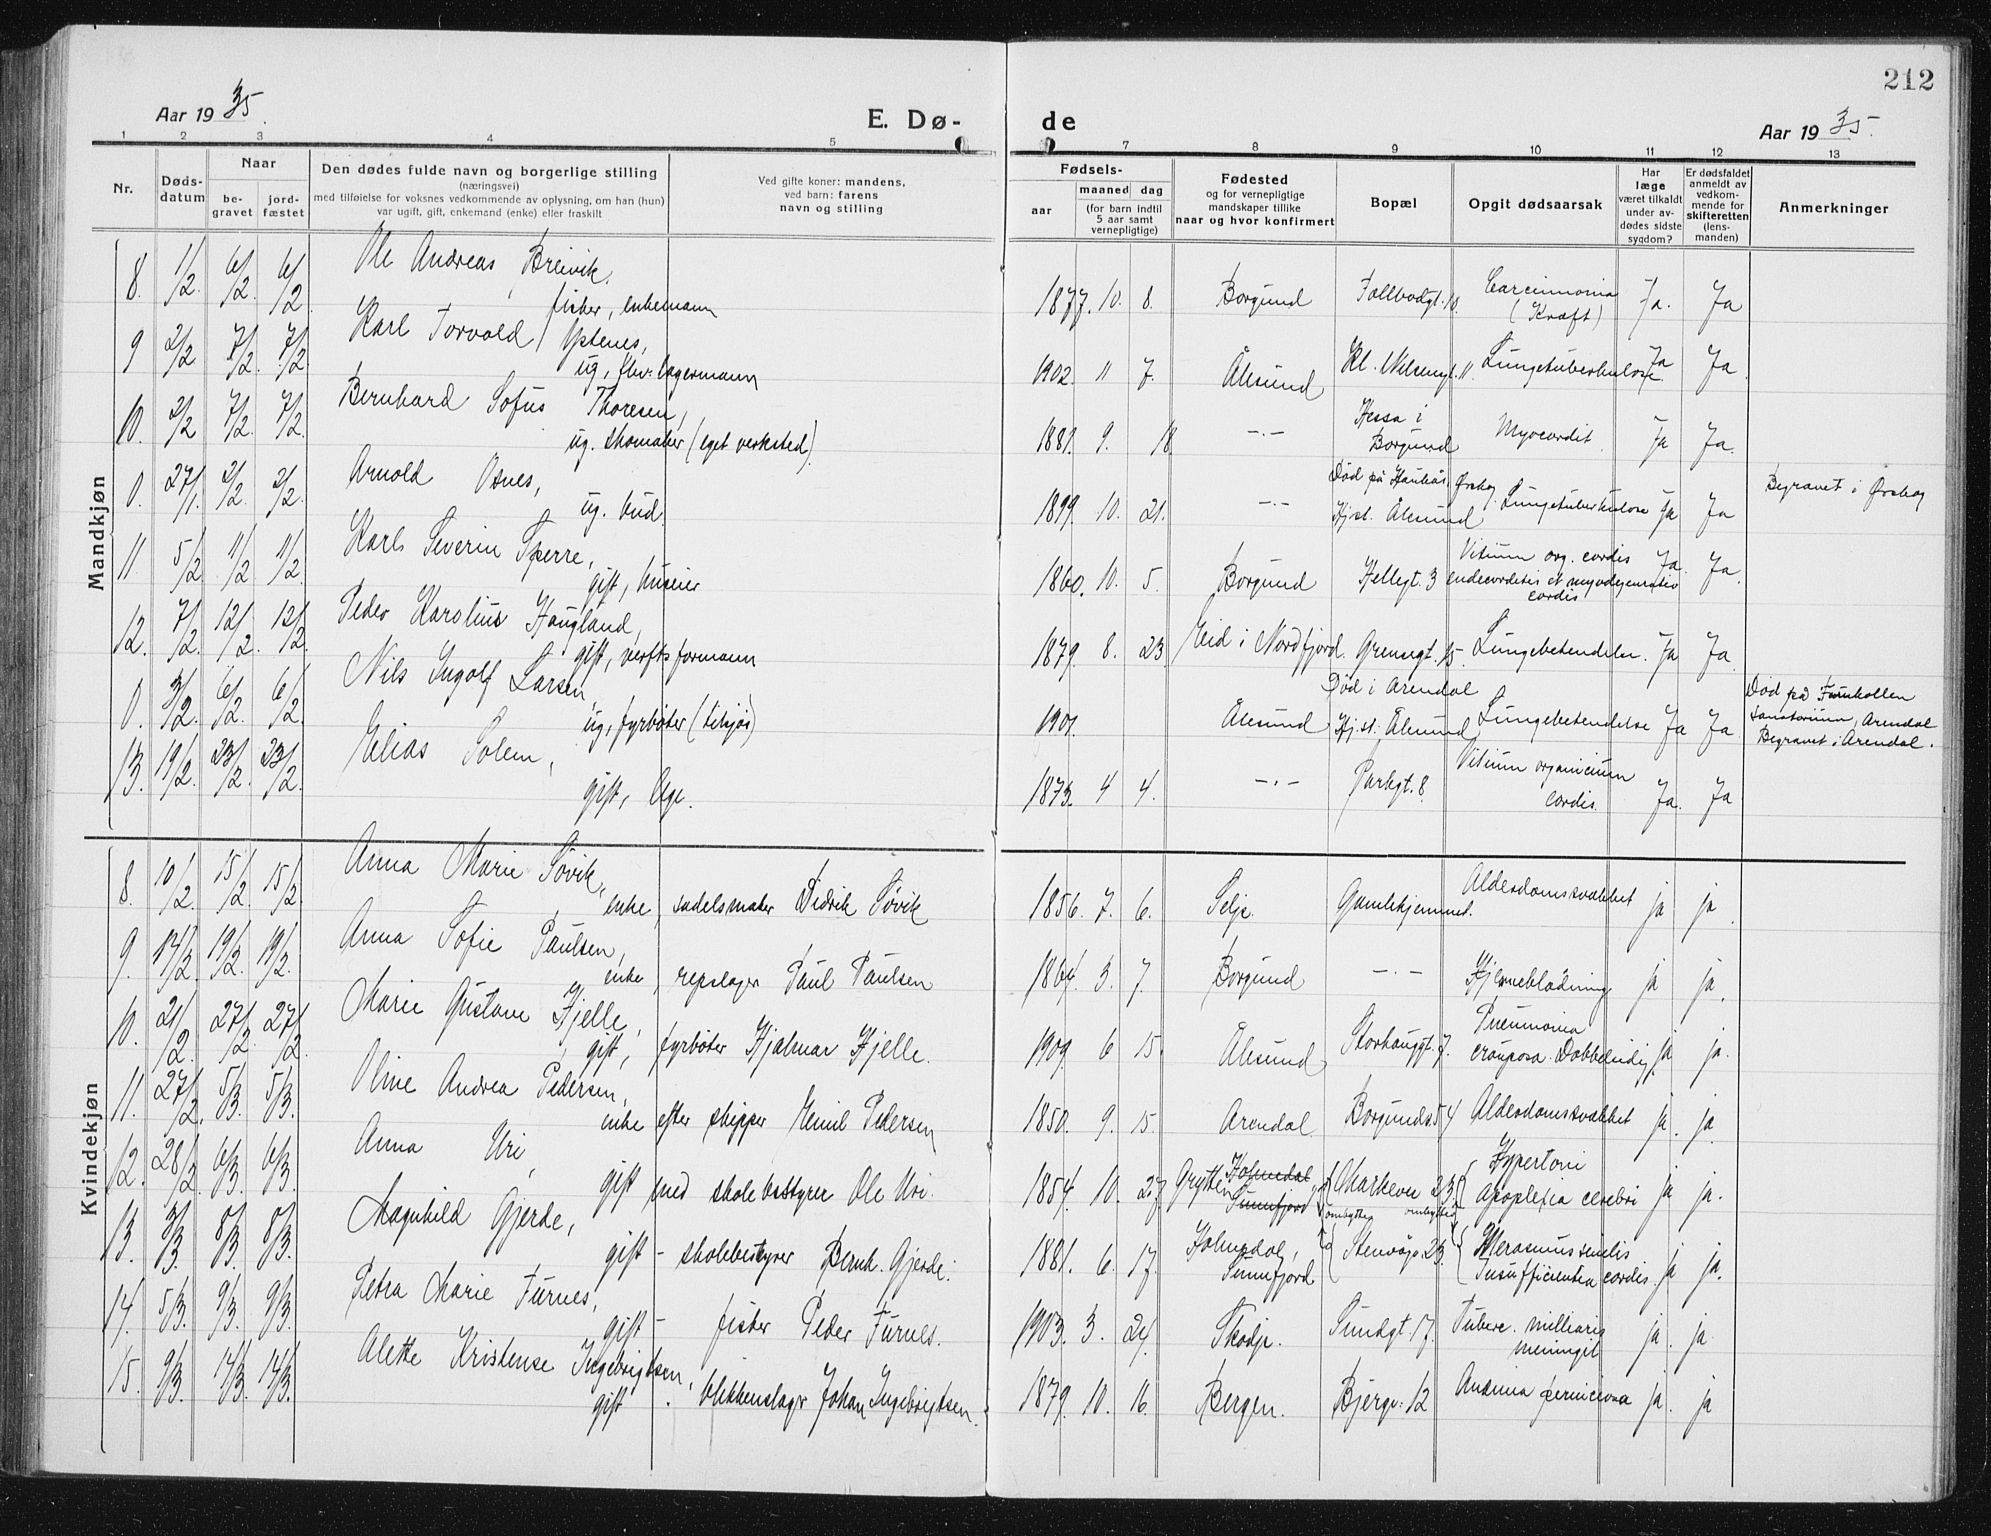 212
Aar 1935.
E. Dø-
de
Aar 1935.
1 2 3 4 5 7 8 9 10 11 12 13
Nr.
Døds-
datum
Naar
be-
gravet
jord-
fæstet
Den dødes fulde navn og borgerlige stilling
(næringsvei)
med tilføielse for voksnes vedkommende av oplysning, om han (hun)
var ugift, gift, enkemand (enke) eller fraskilt
Ved gifte koner: mandens,
ved barn: farens
navn og stilling
Fødsels-
aar
maaned dag
(for barn indtil
5 aar samt
vernepligtige)
Fødested
og for vernepligtige
mandskaper tillike
naar og hvor konfirmert
Bopæl
Opgit dødsaarsak
Har
læge
været tilkaldt
under av-
dødes sidste
sygdom?
Er dødsfaldet
anmeldt av
vedkom-
mende for
skifteretten
(lens-
manden)
Anmerkninger
Mandkjøn
8. 1/2 6/2. 6/2 Ole Andreas Breivik,
fisker, enkemann 1877. 10. 8. Borgund Tollbodgt. 10. Carcinnoma
(Kræft) Ja. Ja
9 2/2 7/2. 7/2. Karl Torvald Ystenes,
ug, fhv. lagermann 1902. 11 7. Ålesund Kl. Nilsengt. 11. Lungetuberkulose. Ja Ja
10. 2/2 7/2. 7/2. Bernhard Sofus Thoresen,
ug. skomaker (eget verksted). 1881. 9. 18 -"- Hessa i
Borgund Myocardit. Ja Ja.
0. 27/1. 2/2. 2/2. Arnold Osnes,
ug. bud. 1899. 10. 21. -"- Død på Ørskog
Hjst. Ålesund Lungetuberkulose Ja Ja Begravet i Ørskog
11. 5/2 11/2 11/2. Karls Severin Sperre,
gift, huseier 1860. 10. 5. Borgund Hellegt. 3 Vitium org. cordis
endocorditis et myodegeneratio
cordis Ja. Ja.
12. 7/2. 12/2. 12/2. Peder Karolius Haugland,
gift, verftsformann 1879. 8. 23 Eid i Nordfjord. Grensegt. 15. Lungebetendelse. Ja Ja.
0. 3/2. 6/2. 6/2. Nils Ingolf Larsen,
ug, fyrbøter (tilsjøs) 1901. Ålesund Død i Arendal
Hj.st. Ålesund Lungebetendelse Ja Ja. Død på Furukollen
sanatorium, Arendal
Begravet i Arendal.
13. 19/2. 23/2. 23/2. Elias Solem,
gift, Age. 1873. 4 4. -"- Parkgt. 8. Vitium organicum
cordis. Ja. Ja
Kvindekjøn
8. 10/2. 15/2. 15/2. Anna Marie Søvik,
enke, sadelsmaker Didrik Søvik 1856. 7. 6. Selje. Gamlehjemmet. Alderdomssvakhet ja ja
9. 14/2 19/2. 19/2. Anna Sofie Paulsen,
enke, repslager Paul Paulsen 1864. 3. 7. Borgund -"- Hjerneblødning ja ja.
10. 21/2. 27/2. 27/2. Marie Gustava Hjelle,
gift, fyrbøter Hjalmar Hjelle. 1909. 6 15. Ålesund Storhauggt. 7. Pneumonia
crouposa. Dobbeltsidig ja ja.
11. 27/2. 5/3. 5/3. Oline Andrea Pedersen,
enke efter skipper Emil Pedersen 1850. 9. 15. Arendal. Borgunds. 54 Alderdomssvakhet ja. ja.
12. 28/2. 6/3. 6/3. Anna Uri,
gift med skolebestyrer Ole Uri. 1854. 10. 27. Grytten Holmedal
Sunnfjord Markevei 23. ombyttes ombyttes Hypertoni
Apoplexia cerebri ja ja.
13. 3/3. 8/3. 8/3. Magnhild Gjerde,
gift - skolebestyrer Bernh. Gjerde. 1881. 6. 17. Holmedal,
Sunnfjord Stenvågv. 23. Merasmus senilis
Insufficientia cordis. ja ja.
14. 5/3. 9/3. 9/3. Petra Marie Furnes,
gift - fisker Peder Furnes. 1903. 3. 24. Skodje. Sundgt. 17. Tuberc. milliaris
meningit ja. ja
15. 9/3. 14/3. 14/3. Alette Kristense Ingebrigtsen,
gift - blikkenslager Johan Ingebrigtsen. 1879. 10. 16. Bergen. Bjergv. 12 Anæmia perniciosa ja. ja